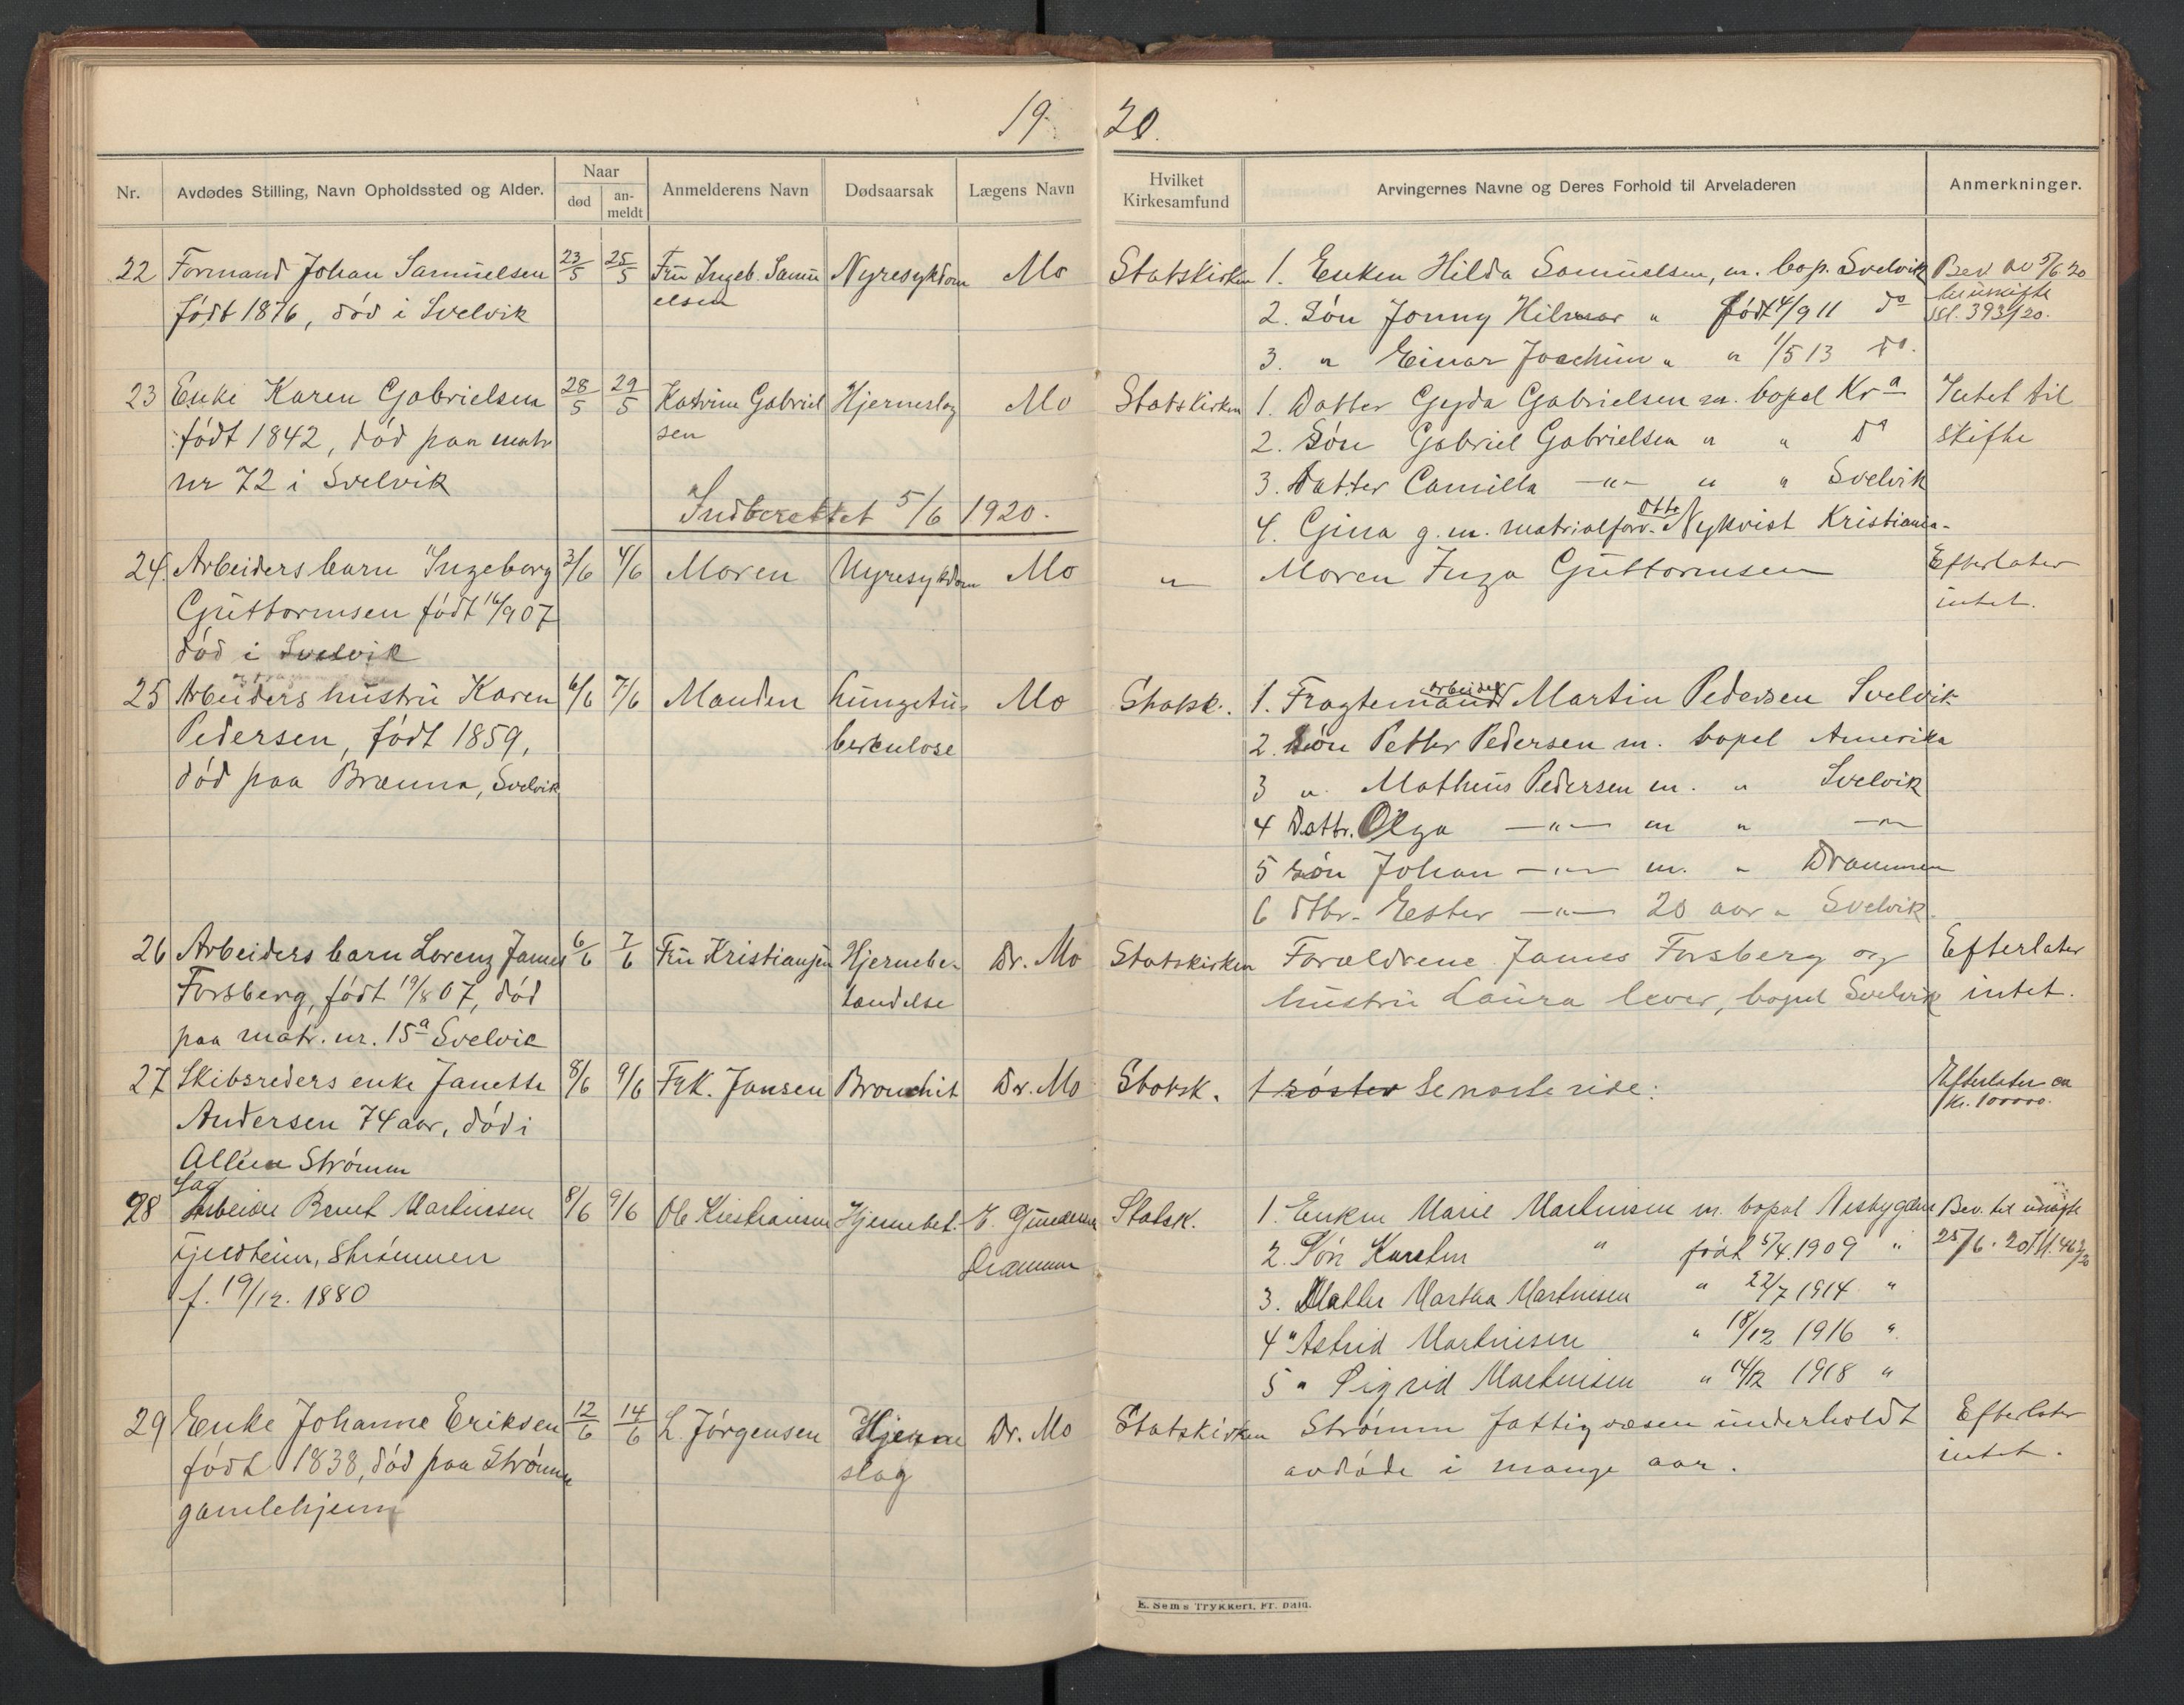 19 20.
Nr. Avdødes Stilling, Navn Opholdssted og Alder. Naar død an-meldt Anmelderens Navn Dødsaarsak Lægens Navn Hvilket Kirkesamfund Arvingernes Navne og Deres Forhold til Arveladeren Anmerkninger.
22 Formand Johan Samuelsen 23/5 25/5 Fru Ingeb. Samu Nyresykdom Mo Statskirken 1. Enken Hilda Samuelsen, m. bop. Svelvik Bev. av 5/6 20
født 1876, død i Svelvik elsen 2. Søn Jonny Hilmar " født 4/9 11 do uskifte
3. " Einar Joachim " " 1/5 13 do. 393/20.
23 Enke Karen Gabrielsen 28/5 29/5 Katrine Gabriel Hjerneslag Mo Statskirken 1. Datter Gyda Gabrielsen m. bopel Kra Intet til
født 1842, død paa matr sen 2. Søn Gabriel Gabrielsen " " do skifte
nr 72 i Svelvik 3. Datter Camilla —"— " " Svelvik
Indberettet 5/6 1920.
4. Gina g. m. matrialforv. Otto Nykvist Kristiania.
24 Arbeiders barn Ingeborg 3/6 4/6 Moren Nyresykdom Mo " Moren Inga Guttormsen Efterlater
Guttormsen født 16/9 07 intet.
død i Svelvik
25 Arbeiders hustru Karen 6/6 7/6 Manden Lungetu- Mo Statsk. 1. Fragtemand arbeider Martin Pedersen Svelvik
Pedersen, født 1859, berkulose 2. Søn Petter Pedersen m. bopel Amerika
død paa Brænna, Svelvik 3 " Matheus Pedersen m. " Svelvik
4 Dattr. Olga —"— m " —"—
5 søn Johan —"— m. " Drammen
6 dtr. Ester —"— 20 aar " Svelvik.
26 Arbeiders barn Lorenz James 6/6 7/6 Fru Kristiansen Hjernebe- Dr. Mo Statskirken Forældrene James Forsberg og Efterlater
Forsberg, født 19/8 07, død tændelse hustru Laura lever, bopel Svelvik intet.
paa matr. nr. 15a Svelvik
27 Skibsreders enke Janette 8/6 9/6 Frk. Jansen Bronchit Dr. Mo Statsk. 1 søster Se næste side: Efterlater ca
Andersen 74 aar, død i kr. 100000.
Alléen Strømm
28 Sag Arbeider Bernt Martinsen 8/6 9/6 Ole Kristiansen Hjernebet. E. Gundersen Statsk. 1. Enken Marie Martinsen m. bopel Nesbygden Bev. til uskifte
Fjeldheim, Strømmen Drammen 2. Søn Karsten " født 5/4. 1909 " 25/6. 20
f. 19/12. 1880 3. Datter Martha Martinsen " 22/7 1914 "
4 " Astrid Martinsen " 18/12 1916 "
5 " Sigrid Martinsen " 14/12 1918 "
29 Enke Johanne Eriksen 12/6 14/6 L. Jørgensen Hjerne Dr. Mo Statskirken Strømm fattigvæsen underholdt Efterlater
født 1838, død paa Strømm slag avdøde i mange aar. intet.
gamlehjem
E. Sems Trykkeri, Fr. hald.